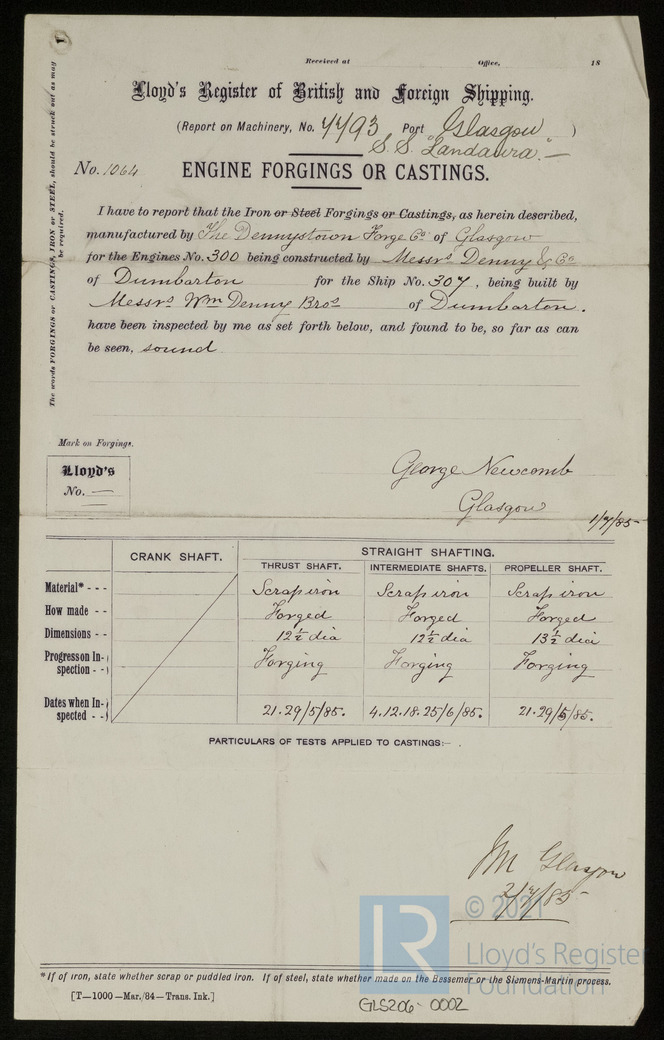 Received at Office, 18
Lloyd's Register of British and Foreign Shipping.
(Report on Machinery, No. 7793 Port Glasgow )
S.S. "Landaura".—
No. 1064 ENGINE FORGINGS OR CASTINGS.
The words FORGINGS or CASTINGS, IRON or STEEL, should be struck out as may be required.
I have to report that the Iron or Steel Forgings or Castings, as herein described,
manufactured by The Dennystown Forge Co. of Glasgow
for the Engines No. 300 being constructed by Messrs Denny & Co
of Dumbarton for the Ship No. 307, being built by
Messrs Wm Denny Bros of Dumbarton.
have been inspected by me as set forth below, and found to be, so far as can
be seen, sound
Mark on Forgings.
Lloyd's
No. —
George Newcomb
Glasgow
1/7/85
CRANK SHAFT. STRAIGHT SHAFTING.
THRUST SHAFT. INTERMEDIATE SHAFTS. PROPELLER SHAFT.
Material* - - - Scrap iron Scrap iron Scrap iron
How made - - Forged Forged Forged
Dimensions - - 12½ dia 12½ dia 13½ dia
Progress on In-
spection - - Forging Forging Forging
Dates when In-
spected - - 21.29/5/85. 4.12.18.25/6/85. 21.29/5/85.
PARTICULARS OF TESTS APPLIED TO CASTINGS:—
JM Glasgow
2/7/85
© 2021
LR Lloyd's Register
Foundation
*If of iron, state whether scrap or puddled iron. If of steel, state whether made on the Bessemer or the Siemens-Martin process.
[T—1000—Mar./84—Trans. Ink.]
GLS206-0002